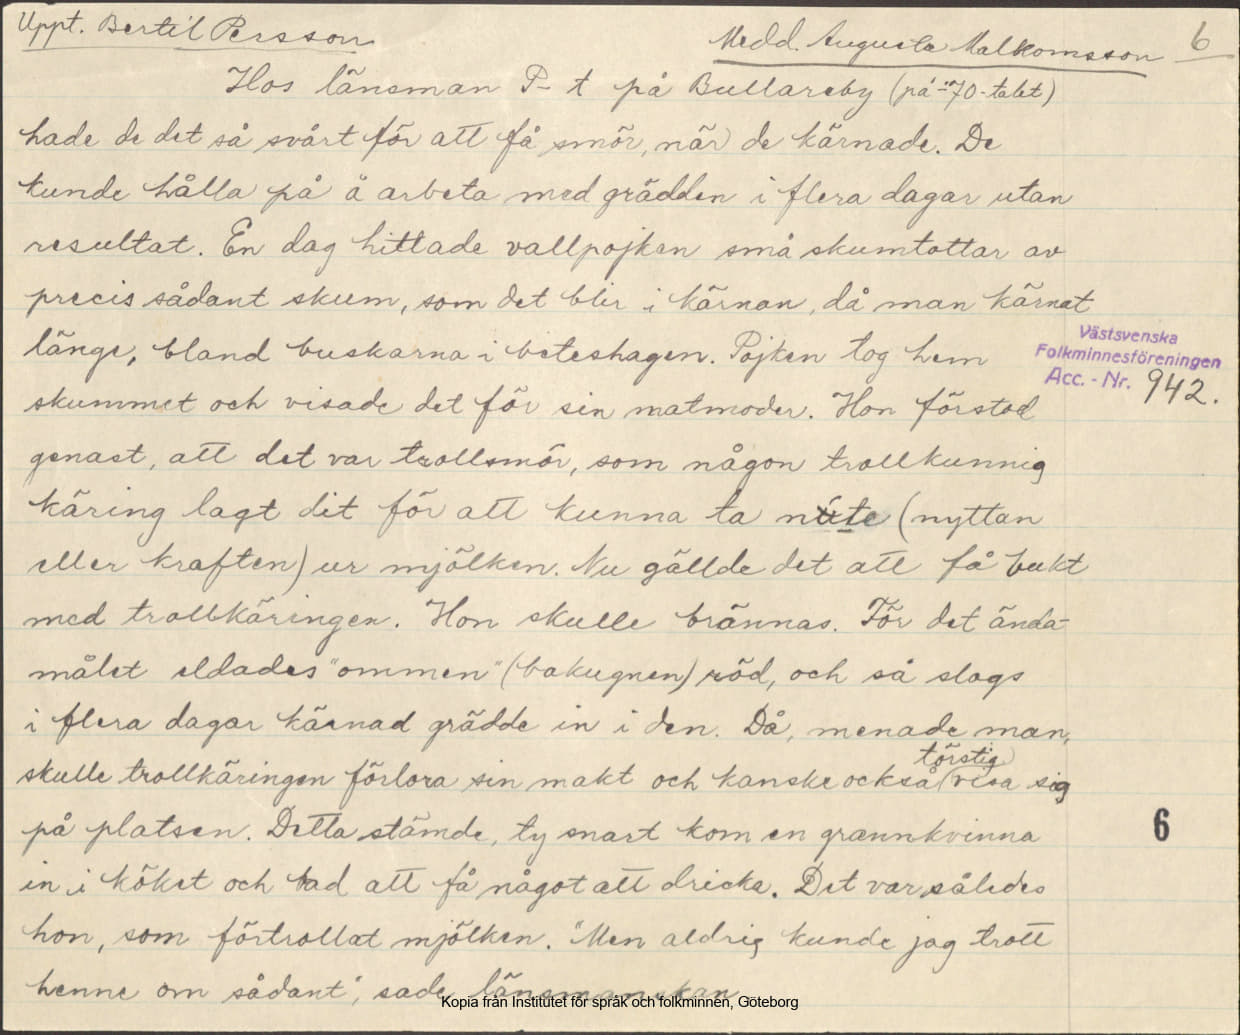 Uppt. Bertil Persson
Medd. Augusta Malkomsson 6
Hos länsman P-t på Bullareby (på -70-talet)
hade de det så svårt för att få smör, när de kärnade. De
kunde hålla på å arbeta med grädden i flera dagar utan
resultat. En dag hittade vallpojken små skumtottar av
precis sådant skum, som det blir i kärnan, då man kärnat
länge, bland buskarna i beteshagen. Pojken tog hem
Västsvenska
Folkminnesföreningen
Acc. - Nr. 942.
skummet och visade det för sin matmoder. Hon förstod
genast, att det var trollsmör, som någon trollkunnig
käring lagt dit för att kunna ta (nyttan
eller kraften) ur mjölken. Nu gällde det att få bukt
med trollkäringen. Hon skulle brännas. För det ända-
målet eldades "ommen" (bakugnen) röd, och så slogs
i flera dagar kärnad grädde in i den. Då, menade man,
skulle trollkäringen förlora sin makt och kanske också törstig visa sig
på platsen. Detta stämde, ty snart kom en grannkvinna
6
in i köket och bad att få något att dricka. Det var således
hon, som förtrollat mjölken. "Men aldrig kunde jag trott
henne om sådant", sade länsmanskan
Kopia från Institutet för språk och folkminnen, Göteborg